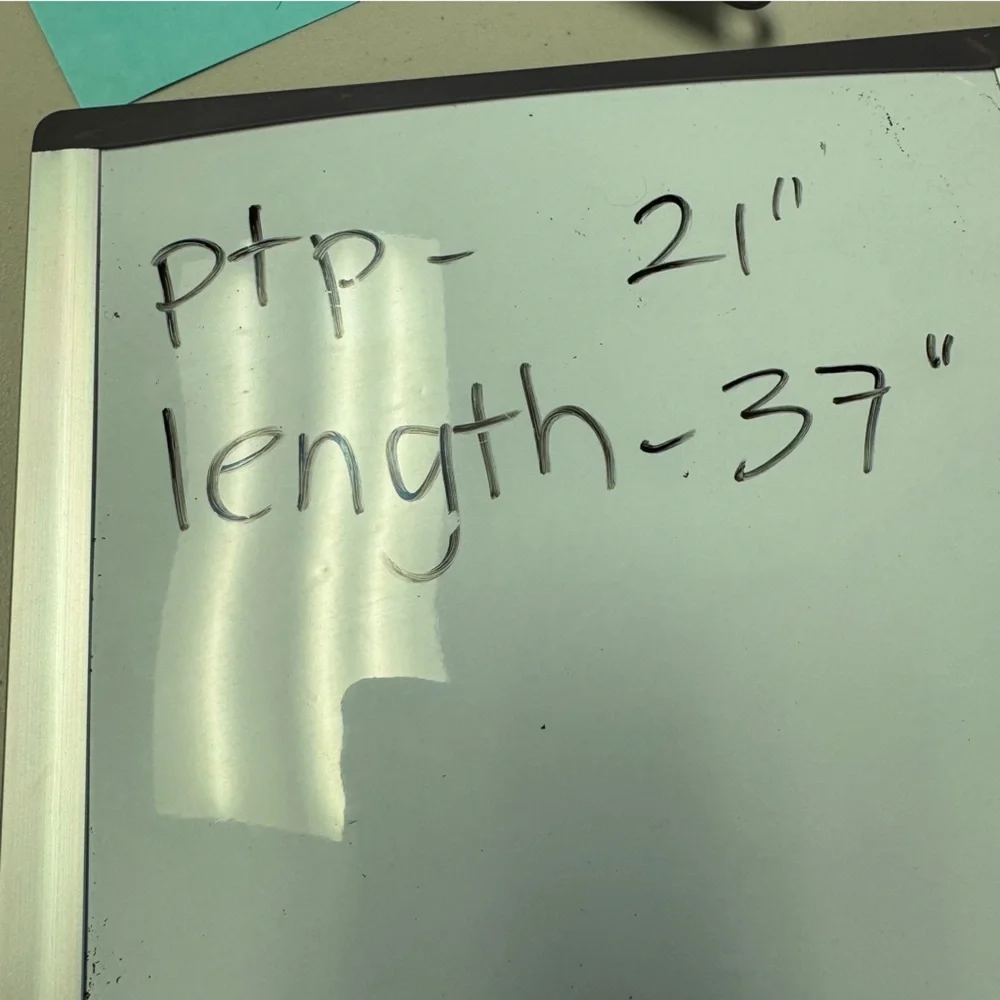 ptp - 21"
length - 37"